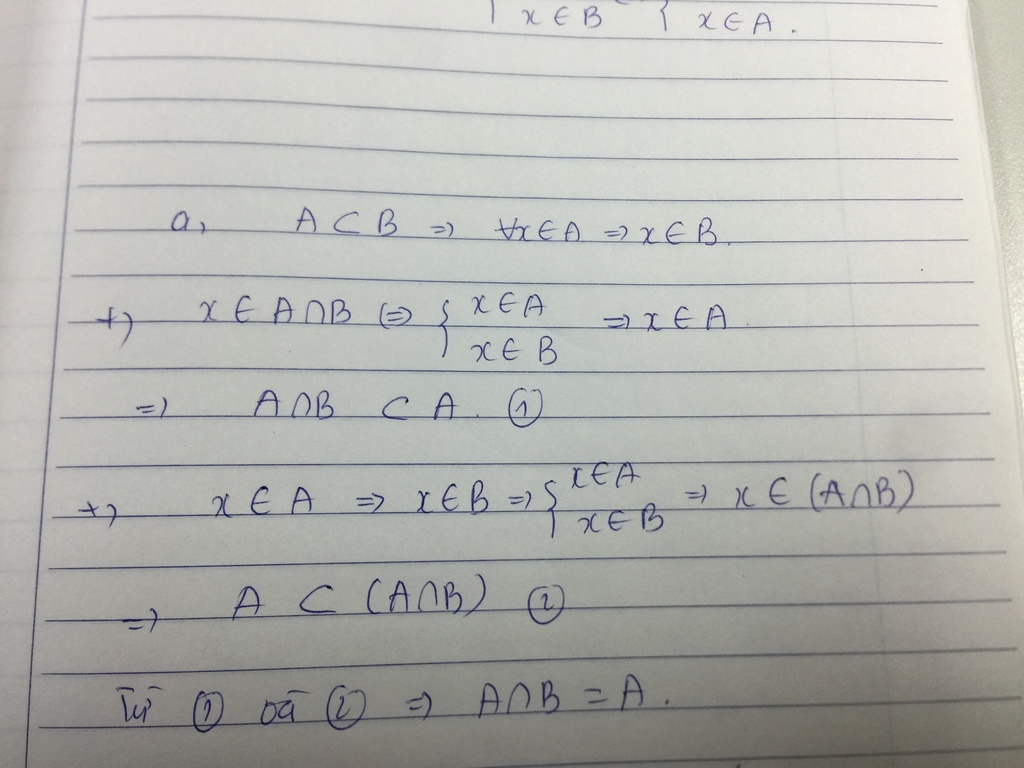 { x ∈ B { x ∈ A .
a, A ⊂ B => ∀x ∈ A => x ∈ B.
+, x ∈ A ∩ B <=> { x ∈ A => x ∈ A.
x ∈ B
=> A ∩ B ⊂ A. ①
+, x ∈ A => x ∈ B => { x ∈ A => x ∈ (A ∩ B)
x ∈ B
=> A ⊂ (A ∩ B) ②
Từ ① và ② => A ∩ B = A.